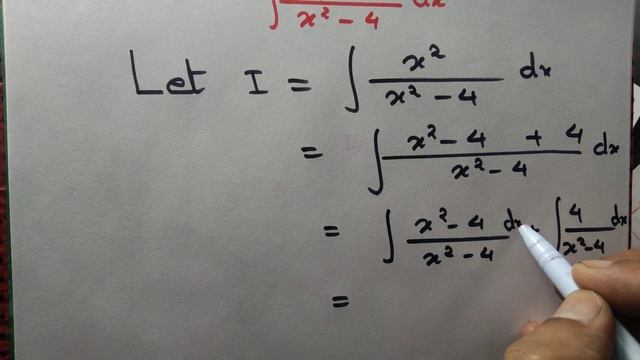 ∫ x² - 4 dx
Let I = ∫ x² / x² - 4 dx
= ∫ x² - 4 + 4 / x² - 4 dx
= ∫ x² - 4 / x² - 4 dx ∫ 4 / x² - 4 dx
=